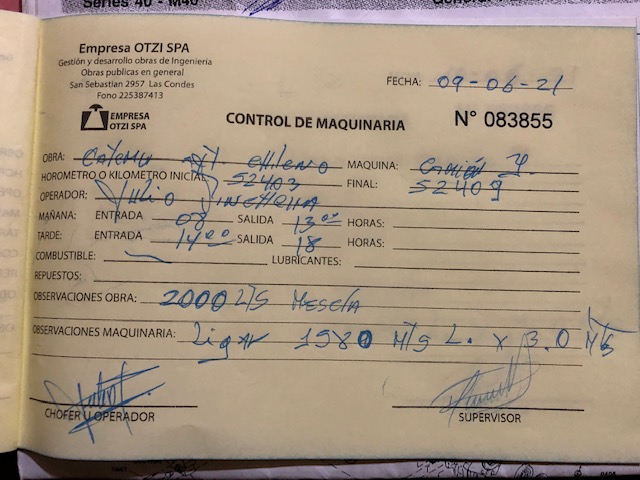 Empresa OTZI SPA
Gestión y desarrollo obras de Ingeniería
Obras publicas en general
San Sebastian 2957 Las Condes
Fono 225387413
EMPRESA
OTZI SPA
CONTROL DE MAQUINARIA
FECHA: 09-06-21
N° 083855
OBRA: chileno MAQUINA: Camión
HOROMETRO O KILOMETRO INICIAL: 52403 FINAL: 52409
OPERADOR: Julio
MAÑANA: ENTRADA 08 SALIDA 13:00 HORAS:
TARDE: ENTRADA 14:00 SALIDA 18 HORAS:
COMBUSTIBLE: LUBRICANTES:
REPUESTOS:
OBSERVACIONES OBRA: 2000 Lts Mescla
OBSERVACIONES MAQUINARIA: Liga 1980 Mts L. x 3.0 Mts
CHOFER U OPERADOR
SUPERVISOR